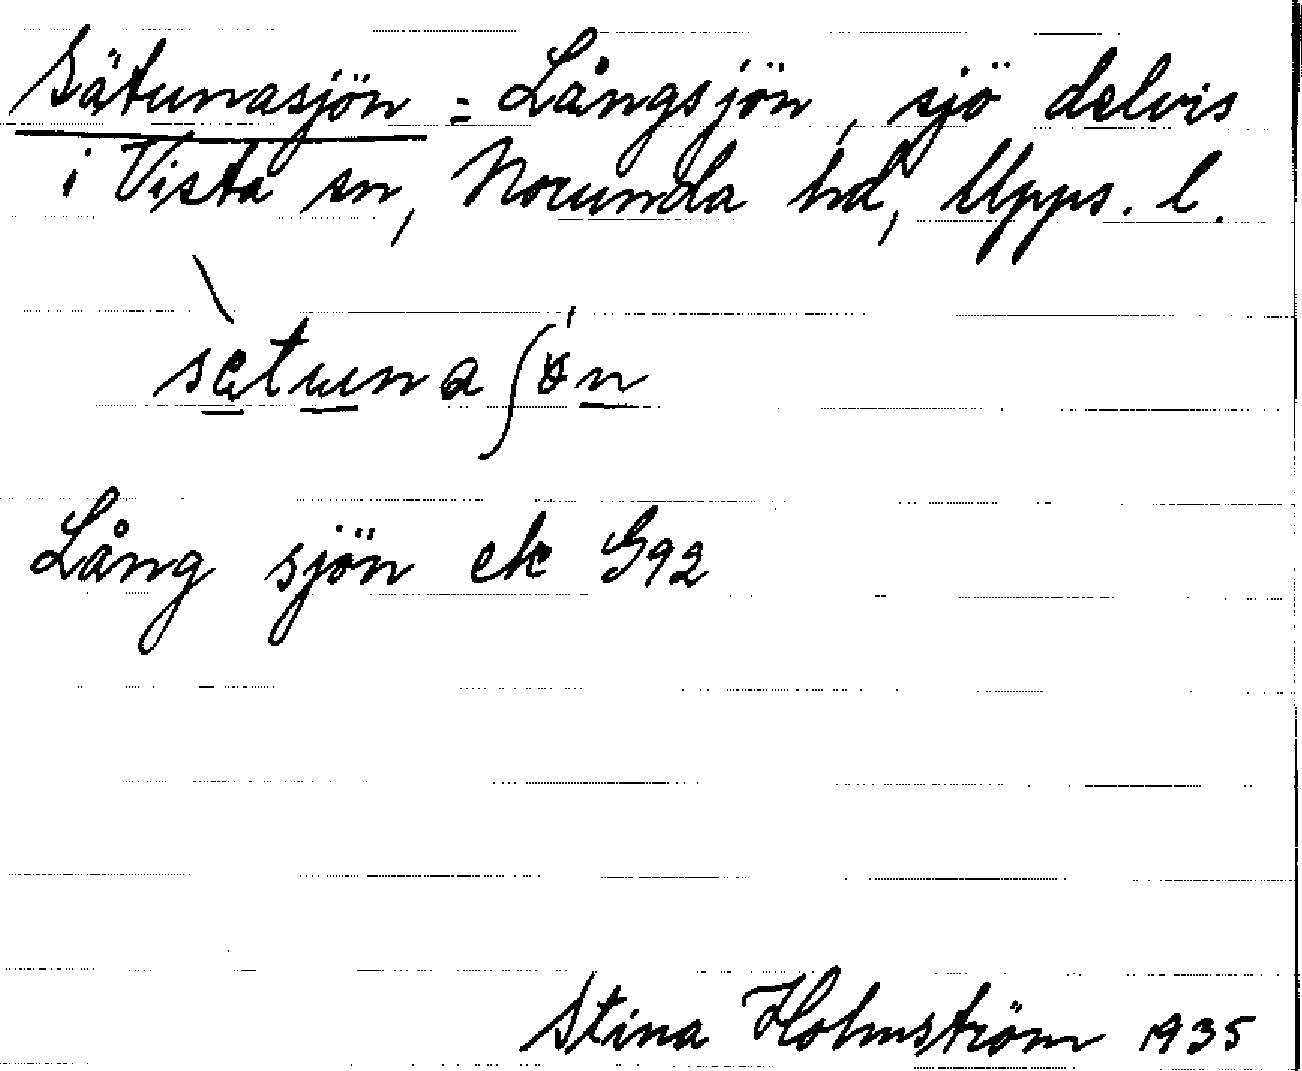 Sätunasjön = Långsjön, sjö delvis
i Vista sn, Norunda hd, Upps. l.
sätuna ʃɵ́n
Långsjön ek G92
Stina Holmström 1935